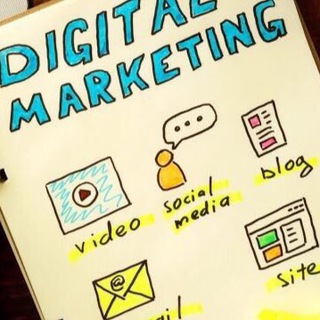 DIGITAL
MARKETING
video
social
media
blog
@
site